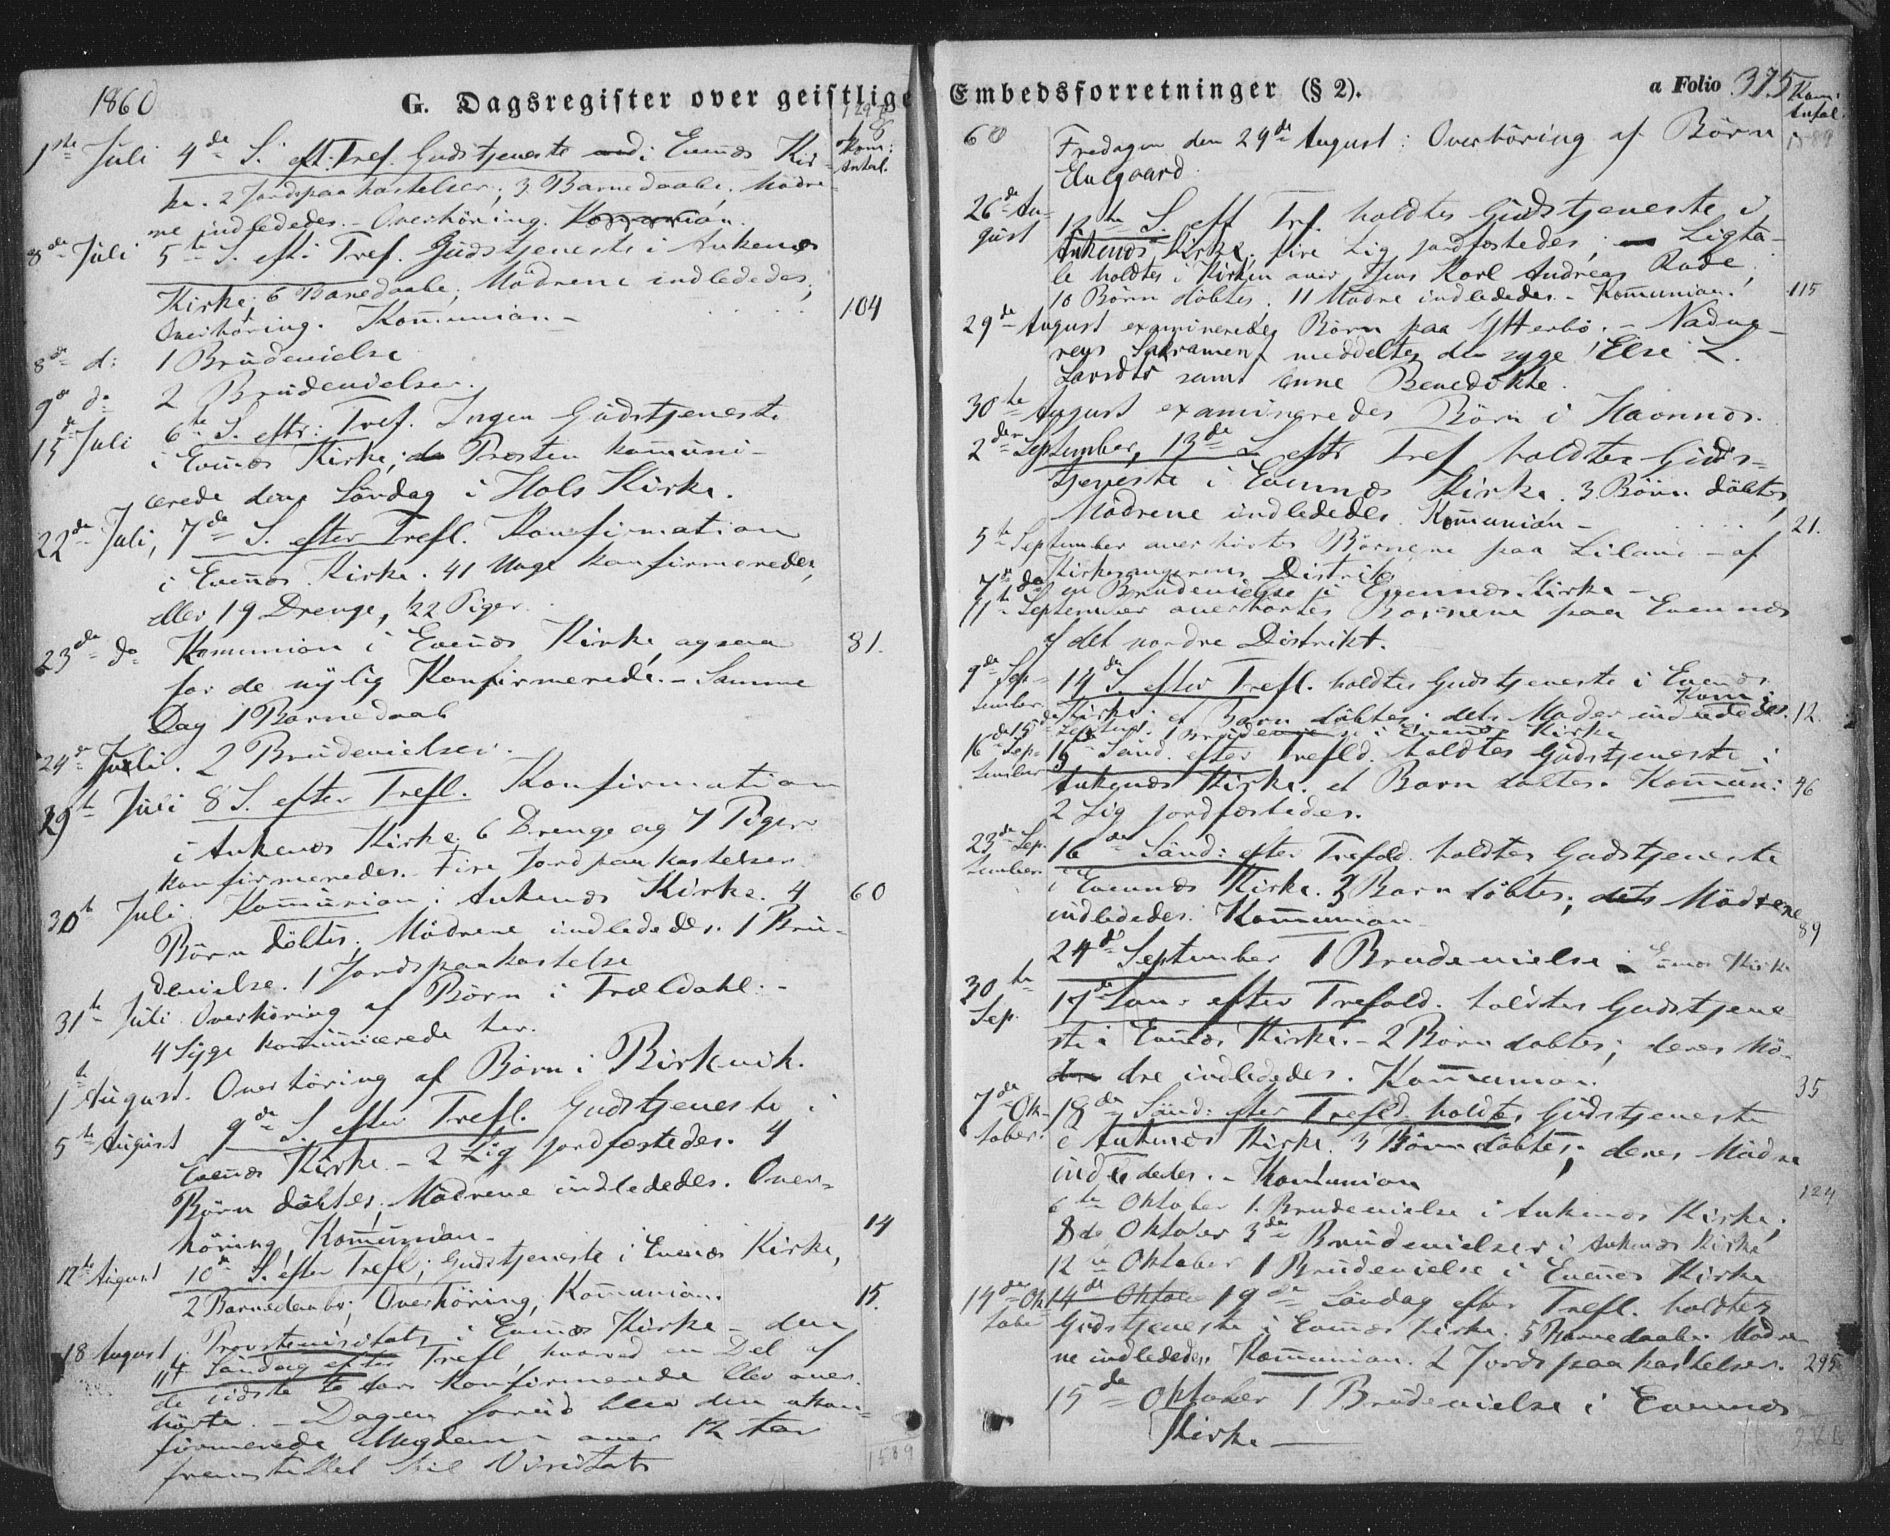 1860
G. Dagsregister over geistlige
Kom:
Antal.
1ste Juli 4de S. eft. Tref. Gudstjeneste i Evenæs Kir-
ke. 2 Jordspaakastelser; 3 Barnedaabe. Mödre-
ne indlededes. - Overhöring. Kommunion.
8de Juli 5te S. eft. Tref. Gudstjeneste i Ankenæs
Kirke; 6 Barnedaabe, Mödrene indlededes;
Overhöring. Kommunion. - 104
8de d: 1 Brudevielse
9de do 2 Brudevielser.
15de Juli 6te S. eftr: Tref. Ingen Gudstjeneste
i Evenæs Kirke; da Presten kommuni-
cerede denne Söndag i Hols Kirke.
22de Juli, 7de S. efter Trefl. Konfirmation
i Evenæs Kirke. 41 Unge konfirmeredes,
eller 19 Drenge, 22 Piger.
23de do Kommunion i Evenæs Kirke ogsaa 81.
for de nylig Konfirmerede. - Samme
Dag 1 Barnedaab
24de Juli. 2 Brudevielser.
29de Juli 8 S. efter Trefl. Konfirmation
i Ankenæs Kirke. 6 Drenge og 7 Piger
konfirmeredes. Fire Jordpaakastelser
30te Juli. Kommunion i Ankenæs Kirke. 4 60
Börn döbtes, Mödrene indlededes. 1 Bru-
devielse. 1 Jordspaakastelse
31te Juli Overhöring af Börn i Trældahl. -
4 Syge kommunicerede her.
1ste August. Overhöring af Börn i Birkvik.
5te August 9de S efter Trefl. Gudstjeneste i
Evenæs Kirke - 2 Lig jordfæstedes. 4
Börn döbtes, Mödrene indlededes. Over-
höring, Kommunion - 14
12te August 10de S. efter Trefl; Gudstjeneste i Evenæs Kirke,
2 Barnedaabe; Overhöring, Kommunion. 15.
18 August. Provstevisitats i Evenæs Kirke - den
11te Söndag efter Trefl, hvorved en Del af
de sidste to Aars Konfirmerede blev over-
hörte. - Dagen forud blev den ukon-
firmerede Ungdom over 12 Aar
fremstillet til Visitats
1589
Embedsforretninger (§ 2).
a Folio 375
Kom:
Antal.
1589
60 Fredagen den 24de August: Overhöring af Börn
Elvegaard.
26de Au-
gust 12te S. eft Tref. holdtes Gudstjeneste i
Ankenæs Kirke, fire Lig jordfæstedes; Ligta-
le holdtes i Kirken over Jens Karl Andreas Rode,
10 Börn döbtes. 11 Mödre indlededes. - Kommunion. 115
29de August examineredes Börn paa Ytterbö. - Nadve-
rens Sakrament meddeltes den syge Else L.
Larsdtr samt Anne Benedikte.
30te August examineredes Börn i Haavnæs.
2den September, 13de S eftr Tref holdtes Guds-
tjeneste i Evenæs Kirke. 3 Börn döbtes,
Mödrene indlededes. Kommunion - 21.
5te September overhörtes Börnene paa Liland - af
Kirkesangerens Distrikt
7de do en Brudevielse i Evennæs Kirke -
11te September overhörtes Börnene paa Evenæs
af det nordre Distrikt.
9de Sep-
tember 14de S. efter Trefl. holdtes Gudstjeneste i Evenæs
Kirke; et Barn döbtes, dets Moder indlededes. Kom: 12.
15de Sept. 1 Brudevielse i Evenæs Kirke
16de Sep-
tember 15de Sönd. efter Trefld. holdtes Gudstjeneste i
Ankenæs Kirke. et Barn döbtes. Kommun: 46
2 Lig jordfæstedes.
23de Sep-
tember 16de Sönd: efter Trefold. holdtes Gudstjeneste
i Evenæs Kirke. 3 Barn döbtes; Mödrene
indlededes. Kommunion 89
24de September 1 Brudevielse i Evenæs Kirke
30te
Sep. 17de Sön: efter Trefold. holdtes Gudstjene
ste i Evenæs Kirke. - 2 Börn döbtes; deres Mö-
dre indlededes. Kommunion. 35
7de Ok-
tober. 18de Sönd: efter Trefld. holdtes Gudstjeneste
i Ankenæs Kirke. 3 Börn döbtes; deres Mödre
indlededes. - Kommunion 124
6te Oktober 1. Brudevielse i Ankenæs Kirke;
8de Oktober 3de Brudevielser i Ankenæs Kirke
12te Oktober 1 Brudevielse i Evenæs Kirke
14de Ok-
tober 14de Oktober 19de Söndag efter Trefl. holdtes
Gudstjeneste i Evenæs Kirke. 5 Barnedaabe. Mödre
ne indlededes. Kommunion. 2 Jordspaakastelser. 295
15de Oktober 1 Brudevielse i Evennæs
Kirke